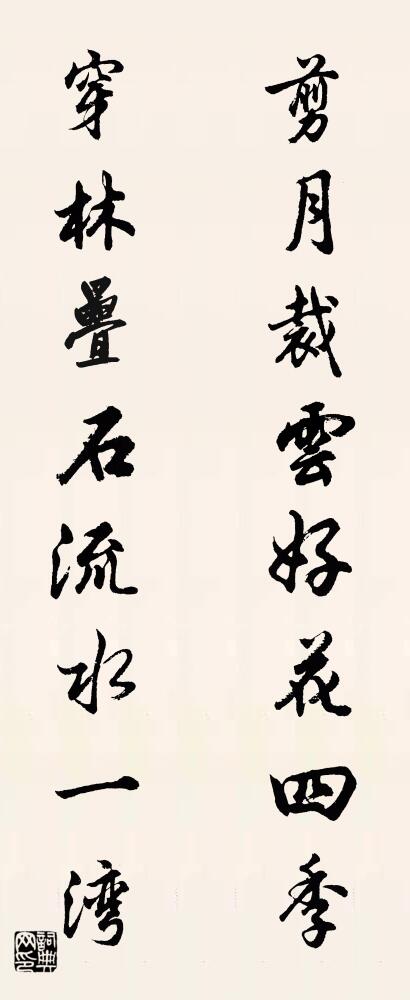 剪月裁雲好花四季
穿林疊石流水一湾
詞典网印